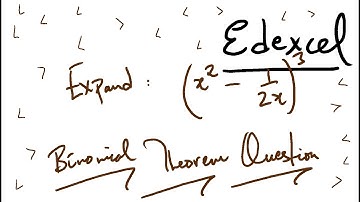 Edexcel
Expand : (x² - 1/2x)³
Binomial Theorem Question